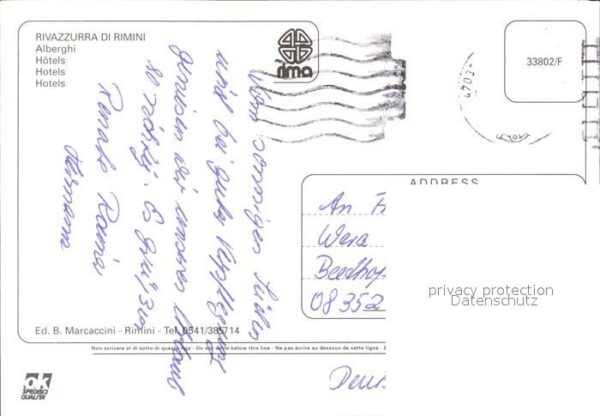 RIVAZZURRA DI RIMINI
Alberghi
Hôtels
Hotels
Hotels
rima
33802/F
4703
Vom sonnigen Süden
und bei guter Verpflegung
genießen wir unseren Urlaub
Es
Renate
Hermann
ADDRESS
An
Wera
08352
privacy protection
Datenschutz
Ed. B. Marcaccini - Rimini - Tel. 0541/385714
Non scrivere al di sotto di questa riga - Do not write below this line - Ne pas écrire au dessous de cette ligne -
ok
SPEDISCI
QUALITÀ!